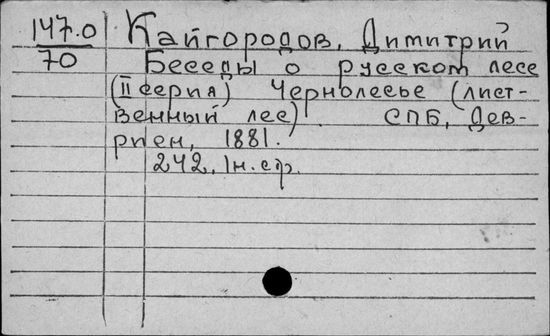 147.0
70
Кайгородов, Димитрий
Беседы о русском лесе
(II серия) Чернолесье (лист-
венный лес) СПБ, Дев-
риен, 1881.
242, 1н.ср.